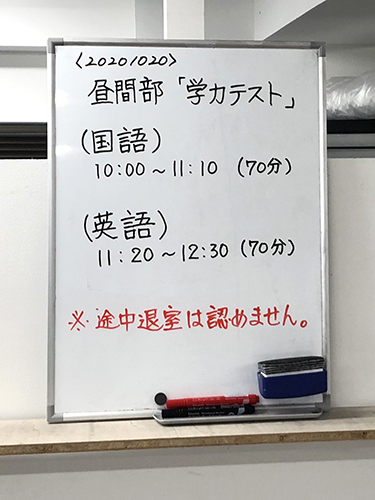 〈20201020〉
昼間部「学力テスト」
(国語)
10:00～11:10 (70分)
(英語)
11:20～12:30 (70分)
※途中退室は認めません。